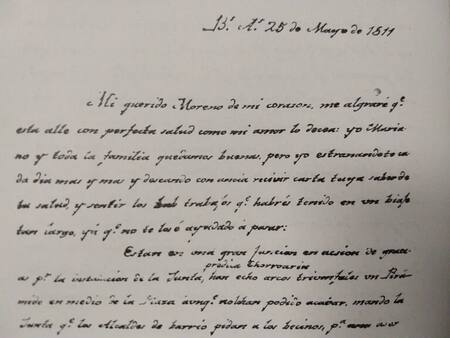 Bs As 25 de Mayo de 1811
Mi querido Moreno de mi corason, me algrare qe
esta alle con perfecta salud como mi amor lo decea: yo Maria
no y toda la familia quedamos buenas, pero yo estranandote ca
da dia mas y mas y deseando con ancia recivir carta tuya saber de
tu salud, y sentir los trabajos qe habrés tenido en un biaje
tan largo, y qe no te los é ayudado á pasar:
Estan en una gran funcion en acsion de graci
predica Chorroarin
as pr la instalacion de la Junta, han echo arcos triumfales un Pira
mide en medio de la Plaza aunqe nolhan podido acavar, mando la
Junta qe los Alcaldes de barrio pidan a los becinos, pa